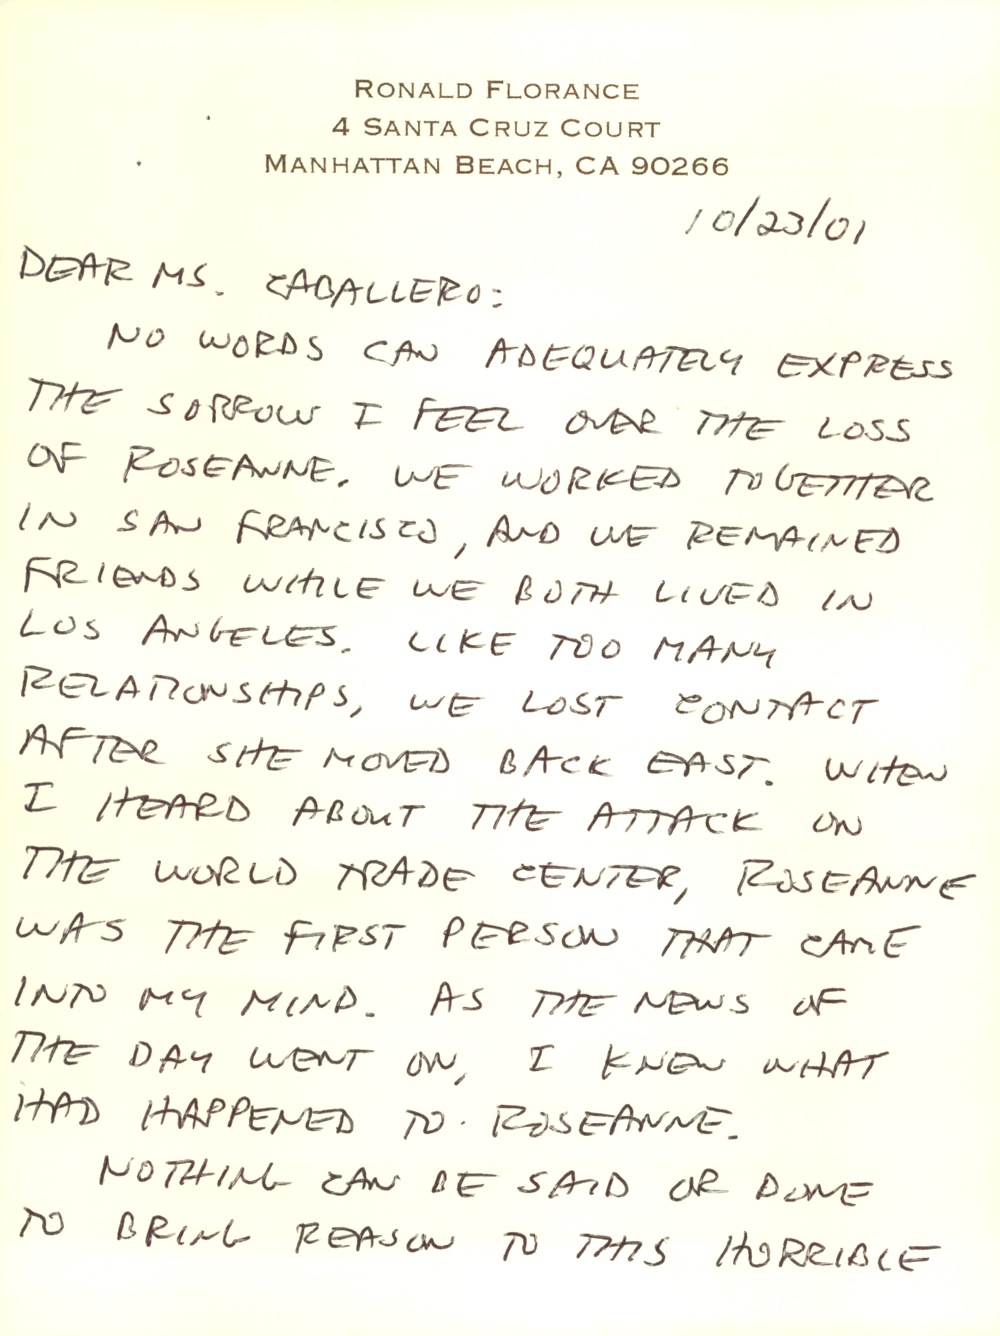 RONALD FLORANCE
4 SANTA CRUZ COURT
MANHATTAN BEACH, CA 90266
10/23/01
DEAR MS. CABALLERO:
NO WORDS CAN ADEQUATELY EXPRESS
THE SORROW I FEEL OVER THE LOSS
OF ROSEANNE. WE WORKED TOGETHER
IN SAN FRANCISCO, AND WE REMAINED
FRIENDS WHILE WE BOTH LIVED IN
LOS ANGELES. LIKE TOO MANY
RELATIONSHIPS, WE LOST CONTACT
AFTER SHE MOVED BACK EAST. WHEN
I HEARD ABOUT THE ATTACK ON
THE WORLD TRADE CENTER, ROSEANNE
WAS THE FIRST PERSON THAT CAME
INTO MY MIND. AS THE NEWS OF
THE DAY WENT ON, I KNEW WHAT
HAD HAPPENED TO ROSEANNE.
NOTHING CAN BE SAID OR DONE
TO BRING REASON TO THIS HORRIBLE